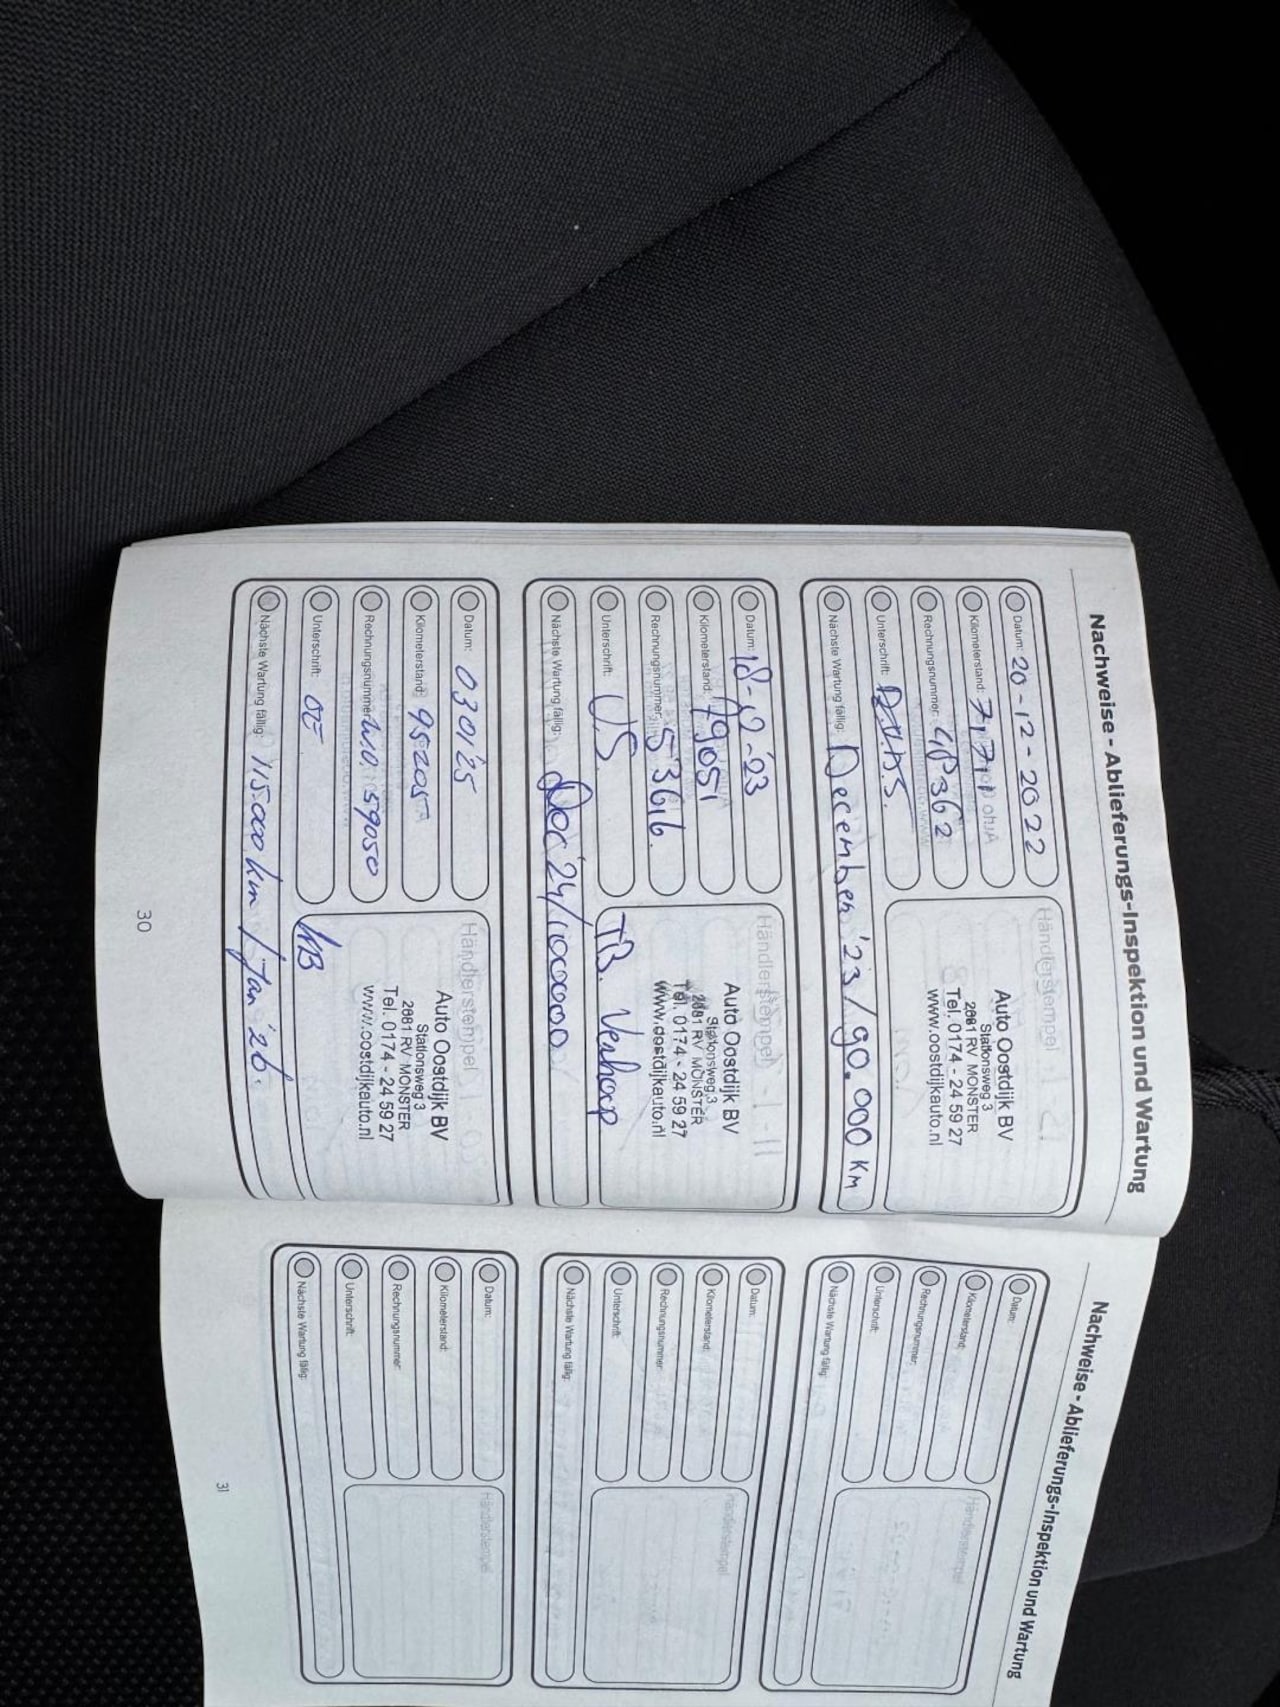 Nachweise - Ablieferungs-Inspektion und Wartung
Datum: 20-12-2022
Kilometerstand: 71711
Rechnungsnummer: 48362
Unterschrift:
Nächste Wartung fällig: December '23/90.000 KM
Händlerstempel
Auto Oostdijk BV
Stationsweg 3
2681 RV MONSTER
Tel. 0174 - 24 59 27
www.oostdijkauto.nl
Datum: 18-12-'23
Kilometerstand: 79051
Rechnungsnummer: 53616.
Unterschrift: J.S.
Nächste Wartung fällig: Dec '24/100000
Händlerstempel
Auto Oostdijk BV
Stationsweg 3
2681 RV MONSTER
Tel. 0174 - 24 59 27
www.oostdijkauto.nl
TB. Verhoop
Datum: 0301'25
Kilometerstand: 95205
Rechnungsnummer: 59050
Unterschrift:
Nächste Wartung fällig: 115000 km / Jan '26.
Händlerstempel
Auto Oostdijk BV
Stationsweg 3
2681 RV MONSTER
Tel. 0174 - 24 59 27
www.oostdijkauto.nl
30
Nachweise - Ablieferungs-Inspektion und Wartung
Datum:
Kilometerstand:
Rechnungsnummer:
Unterschrift:
Nächste Wartung fällig:
Händlerstempel
Datum:
Kilometerstand:
Rechnungsnummer:
Unterschrift:
Nächste Wartung fällig:
Händlerstempel
Datum:
Kilometerstand:
Rechnungsnummer:
Unterschrift:
Nächste Wartung fällig:
Händlerstempel
31